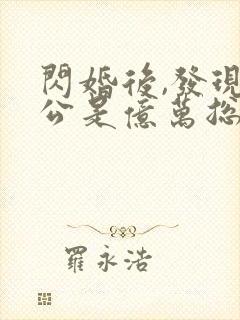 閃婚後,發現
公是億萬總
羅永浩